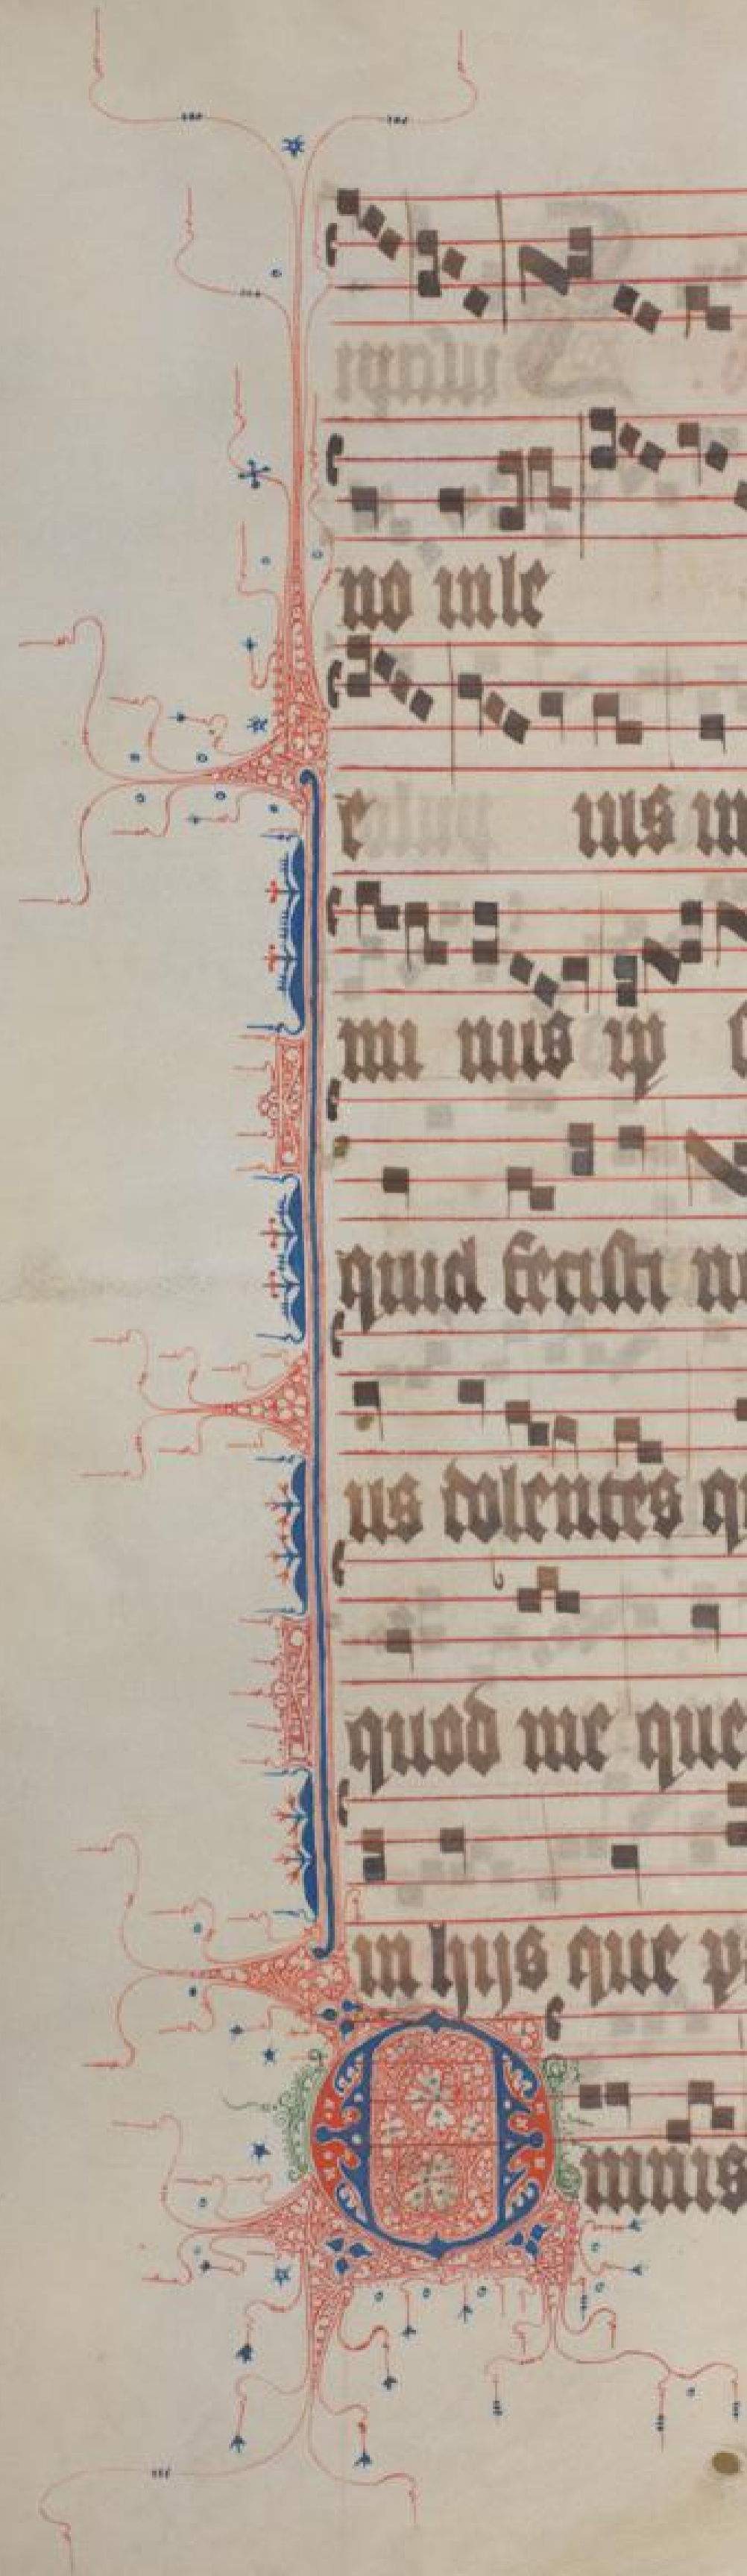 no inle
e ius in
mi nus ip
quid fecisti n
us dolentes q
quod me que
in hijs que p
Omnis